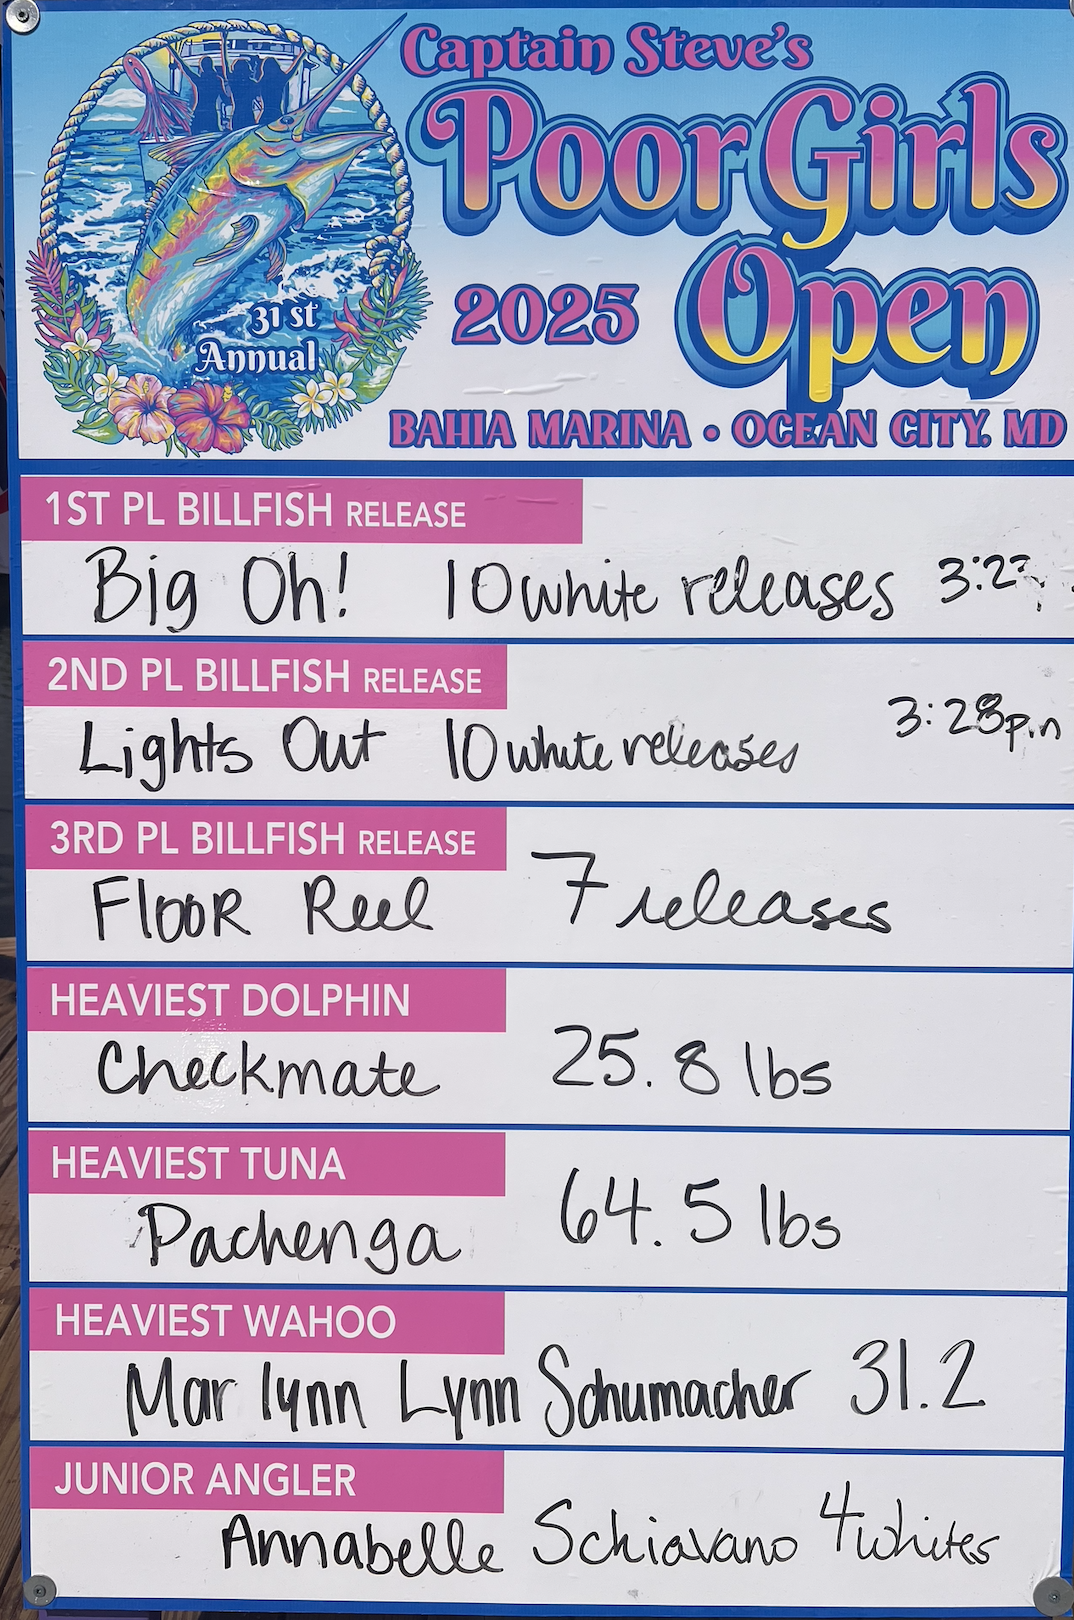 Captain Steve's
Poor Girls
Open
2025
31st
Annual
BAHIA MARINA • OCEAN CITY, MD
1ST PL BILLFISH RELEASE
Big Oh! 10 white releases
2ND PL BILLFISH RELEASE
Lights Out 10 white releases 3:28pm
3RD PL BILLFISH RELEASE
FlooR Reel 7 releases
HEAVIEST DOLPHIN
Checkmate 25.8 lbs
HEAVIEST TUNA
Pachenga 64.5 lbs
HEAVIEST WAHOO
Marlynn Lynn Schumacher 31.2
JUNIOR ANGLER
Annabelle Schiavano 4 whites